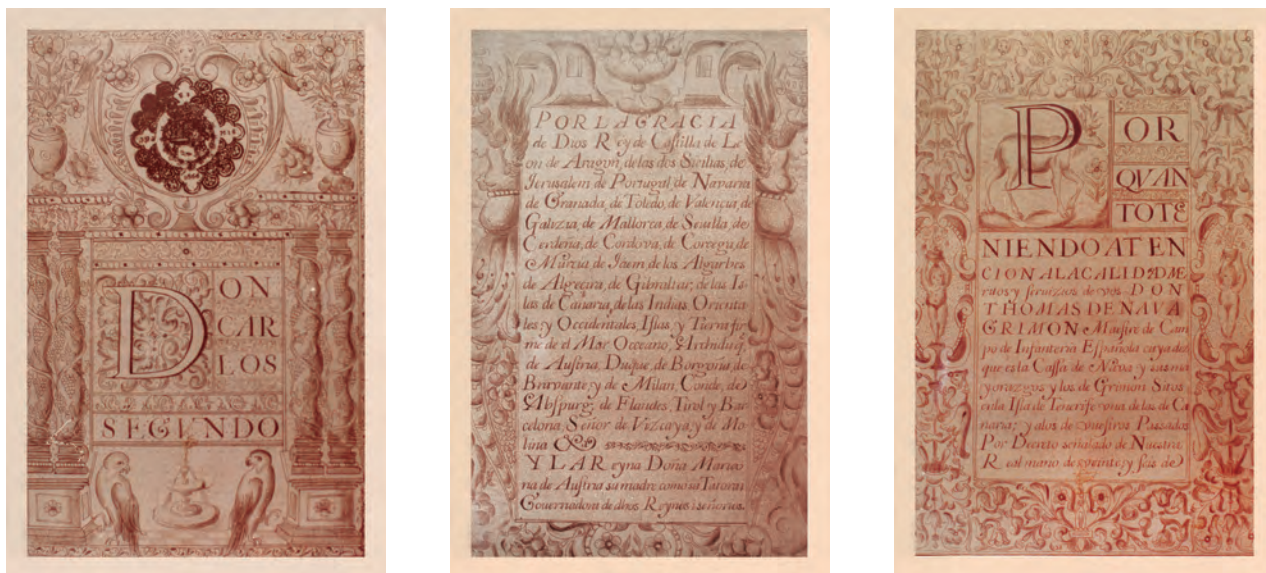 DON
CAR
LOS
SEGVNDO
POR LA GRACIA
de Dios Rey de Castilla de Le
on de Aragon, de las dos Sicilias, de
Jerusalem de Portugal, de Navarra
de Granada, de Toledo, de Valencia, de
Galizia, de Mallorca, de Sevilla, de
Cerdeña, de Cordova, de Corcega, de
Murcia de Jaem de los Algarbes
de Algecira, de Gibraltar, de las Is
las de Canaria, de las Indias Orienta
les, y Occidentales, Islas, y Tierra fir
me de el Mar Occeano, Archiduq
de Austria, Duque de Borgoña, de
Bravante, y de Milan, Conde, de
Abspurg, de Flandes, Tirol y Bar
celona, Señor de Vizcaya, y de Mo
lina &c
Y LA Reyna Doña Maria
na de Austria su madre como su Tutora
Governadora de dhos Reynos i señorios.
POR
QVAN
TOTE
NIENDO ATEN
CION A LA CALIDAD ME
ritos y servizios de vos DON
THOMAS DE NAVA
GRIMON Maestre de Cam
po de Infanteria Española cuya des
que es la Cassa de Nava y sus ma
yorazgos y los de Grimon Sitos
en la Isla de Tenerife vna de las de Ca
naria; y a los de vuestros Passados
Por Decreto señalado de Nuestra
Real mano de veinte, y seis de